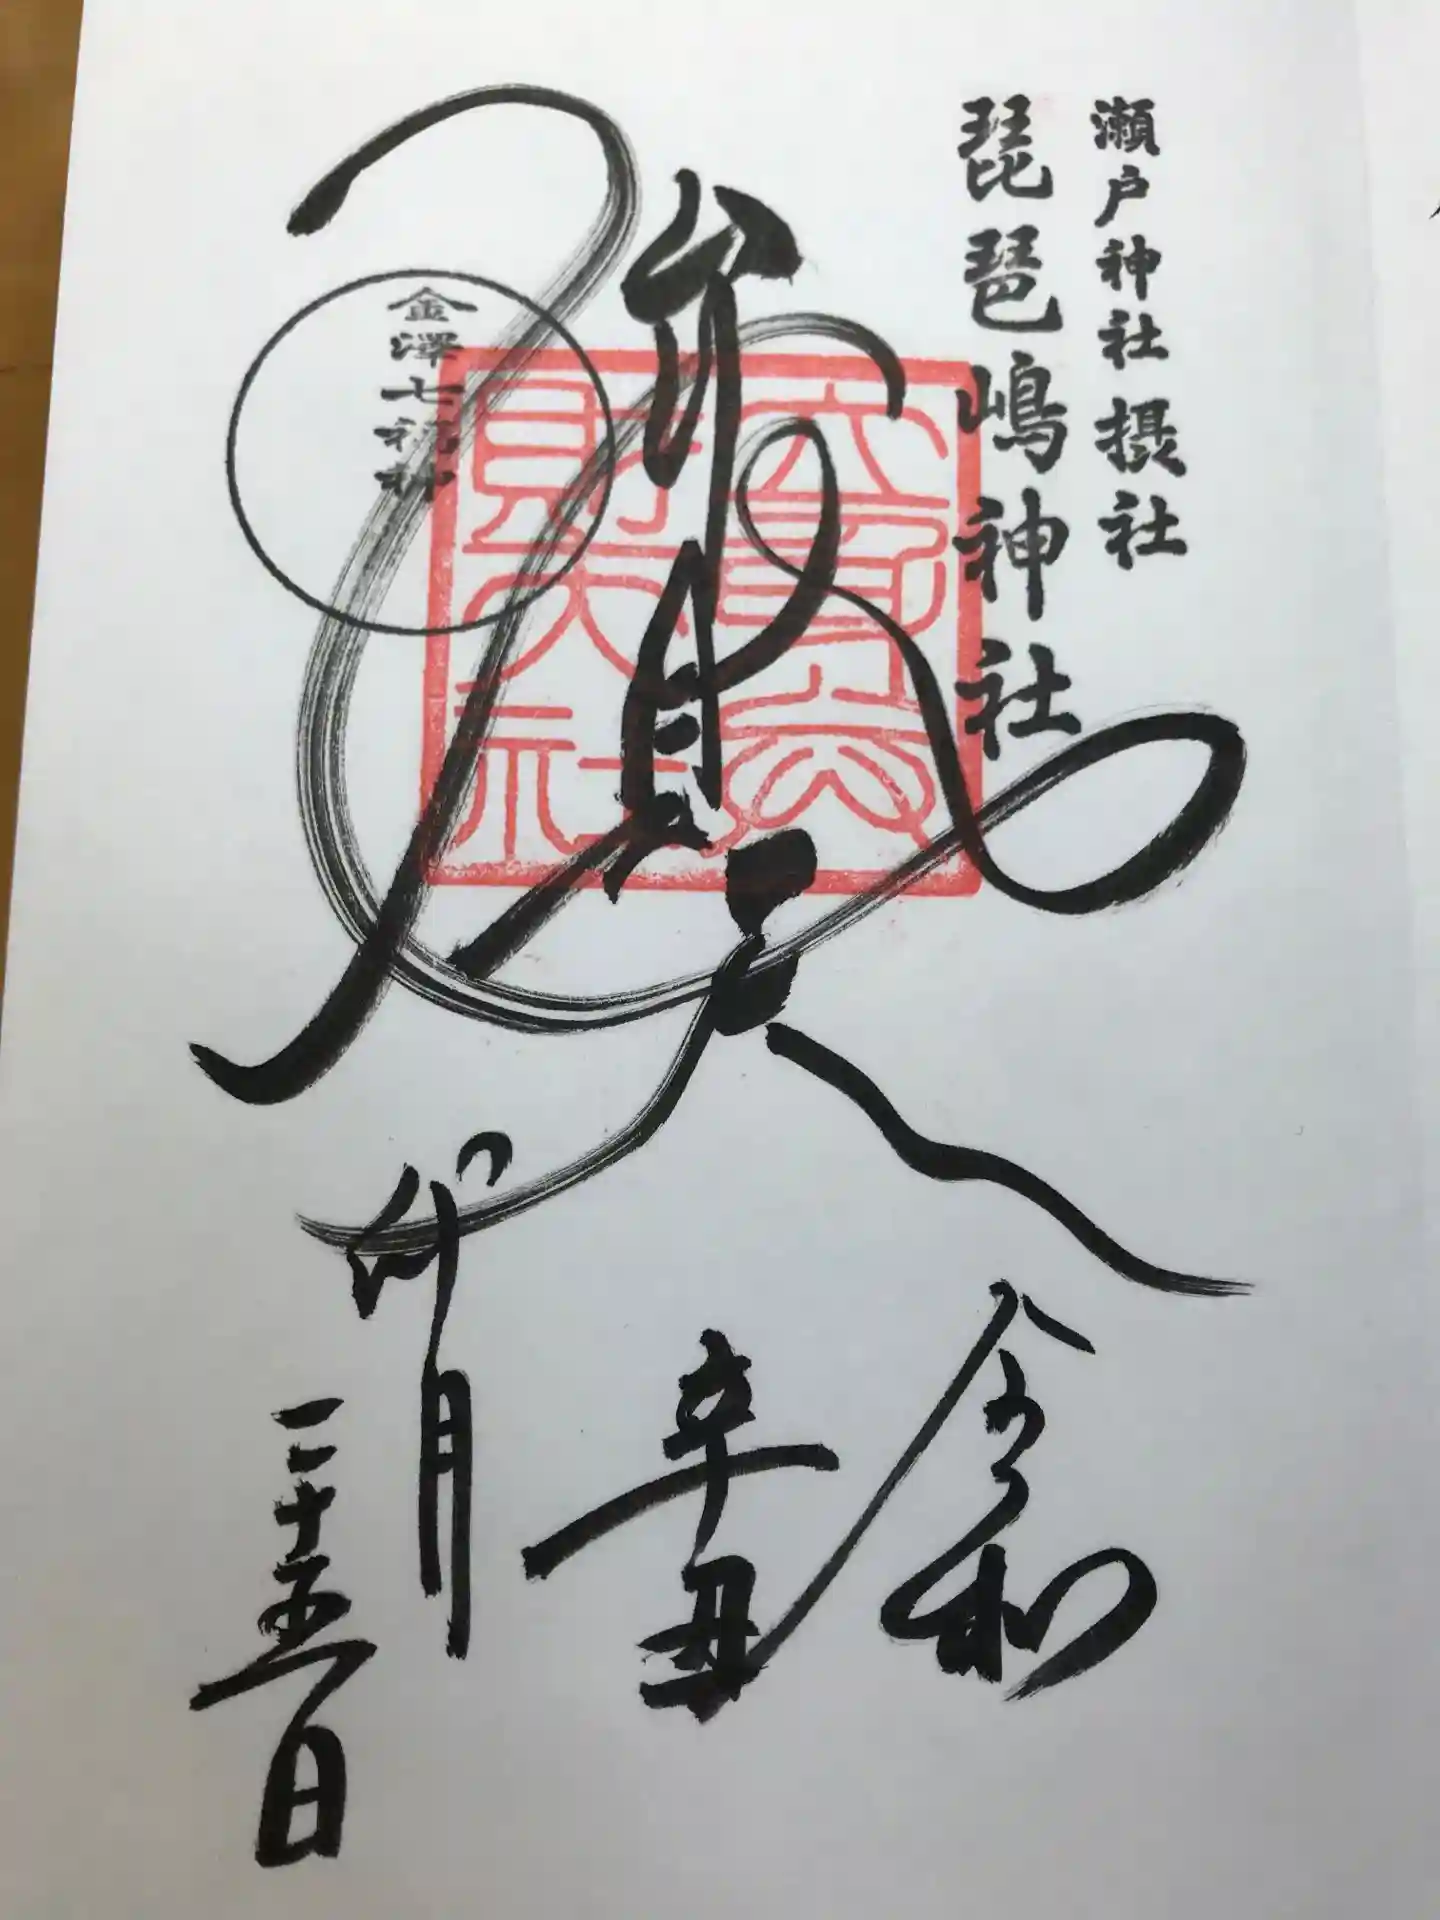 瀬戸神社摂社
琵琶嶋神社
弁財天
金澤七福神
令和
辛丑
卯月
二十五日